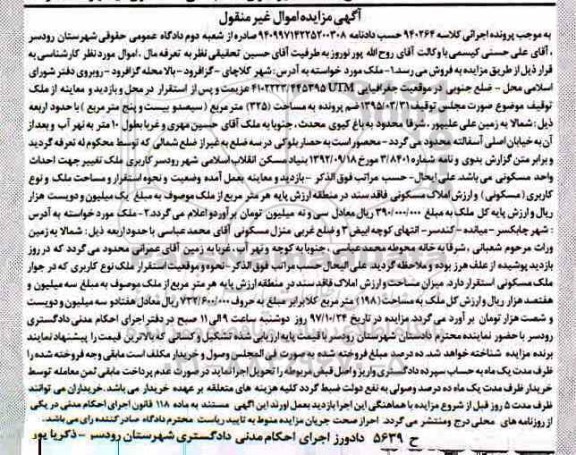 آگهی مزایده اموال غیر منقول
به موجب پرونده اجرائی کلاسه ۹۴۰۲۶۴ حسب دادنامه ۹۴۰۹۹۷۱۴۲۲۵۲۰۰۳۰۸ صادره از شعبه دوم دادگاه عمومی حقوقی شهرستان رودسر
، آقای علی حسنی کیسمی با وکالت آقای روح الله پور نوروز به طرفیت آقای حسین تحقیقی نظر به تعرفه مال ، اموال مورد نظر کارشناسی به
قرار ذیل از طریق مزایده به فروش می رسد.۱- ملک مورد خواسته به آدرس: شهر کلاچای - گزافرود - بالا محله گزافرود - روبروی دفتر شورای
اسلامی محل - ضلع جنوبی در موقعیت جغرافیایی UTM ۴۱۰۲۲۲۳/۴۴۵۳۹۵ عزیمت و پس از استقرار در محل و بازدید و معاینه از ملک
توقیف موضوع صورت مجلس توقیف ۱۳۹۵/۰۳/۳۱ ضم پرونده به مساحت (۳۲۵) متر مربع (سیصد و بیست و پنج متر مربع) با حدود اربعه
ذیل: شمالا به زمین علی علیپور ، شرقا محدود به باغ کیوی محدث ، جنوبا به ملک آقای حسین مهری و غربا بطول ۱۰ متر به نهر آب و بعد از
آن به خیابان اصلی آسفالته محدود می گردد - محصور است به حصار بلوکی در سه ضلع به غیر از ضلع شمالی که توسط محکوم له تعرفه گردید
و برابر متن گزارش بدوی و نامه شماره ۳/۸۴۰۱ مورخ ۱۳۹۲/۰۹/۱۸ بنیاد مسکن انقلاب اسلامی شهر رودسر کاربری ملک تغییر جهت احداث
واحد مسکونی می باشد. علی ایحال - حسب مراتب فوق الذکر - بازدید و معاینه بعمل آمده وضعیت و نحوه استقرار و مساحت ملک و نوع
کاربری (مسکونی) و ارزش املاک مسکونی فاقد سند در منطقه ارزش پایه هر متر مربع از ملک موصوف به مبلغ یک میلیون و دویست هزار
ریال و ارزش پایه کل ملک به مبلغ ۳۹۰/۰۰۰/۰۰۰ ریال معادل سی و نه میلیون تومان برآورد و اعلام می گردد.۲- ملک مورد خواسته به آدرس
: شهر چابکسر - میانده - گندسر - انتهای کوچه ابیض ۳ و ضلع غربی منزل مسکونی آقای محمد عباسی با حدود اربعه ذیل: شمالا به زمین
وراث مرحوم شعبانی ، شرقا به خانه محوطه محمد عباسی ، جنوبا به کوچه و نهر آب ، غربا به زمین آقای عمرانی محدود می گردد که در روز
بازدید پوشیده از علف هرز بوده و ملاحظه گردید. علی الیحال حسب مراتب فوق الذکر - نحوه و موقعیت استقرار ملک نوع کاربری که در جوار
ملک مسکونی استقرار دارد. میزان مساحت و ارزش املاک فاقد سند در منطقه ارزش پایه هر متر مربع از ملک موصوف به مبلغ سه میلیون و
هفتصد هزار ریال و ارزش کل ملک به مساحت (۱۹۸) متر مربع کلا برابر مبلغ به حروف ۷۳۲/۶۰۰/۰۰۰ ریال معادل هفتاد و سه میلیون و دویست
و شصت هزار تومان بر آورد می گردد. مزایده در تاریخ ۹۷/۱۰/۲۴ روز دوشنبه ساعت ۹ الی ۱۱ صبح در دفتر اجرای احکام مدنی دادگستری
رودسر با حضور نماینده محترم دادستان شهرستان رودسر با قیمت پایه ارزیابی شده تشکیل و کسانی که بالاترین قیمت را پیشنهاد نمایند
برنده مزایده شناخته خواهد شد. ده درصد مبلغ فروخته شده به صورت فی المجلس وصول و خریدار مکلف است مابقی وجه فروخته شده را
ظرف مدت یک ماه به حساب سپرده دادگستری واریز و اصل فیش مربوطه را تحویل اجرا نماید در صورت عدم پرداخت مابقی ثمن معامله توسط
خریدار ظرف مدت یک ماه ده درصد وصولی به نفع دولت ضبط گردد کلیه هزینه های متعلقه بر عهده خریدار می باشد. خریداران می توانند
ظرف مدت ۵ روز قبل از شروع مزایده با هماهنگی این اجرا بازدید بعمل آورند این آگهی مستند به ماده ۱۱۸ قانون اجرای احکام مدنی در یکی
از روزنامه های محلی درج و منتشر می گردد. احراز صحت جریان مزایده منوط به تایید ریاست محترم دادگاه صادر کننده رای می باشد.
ح ۵۶۳۹ دادورز اجرای احکام مدنی دادگستری شهرستان رودسر - ذکریا پور